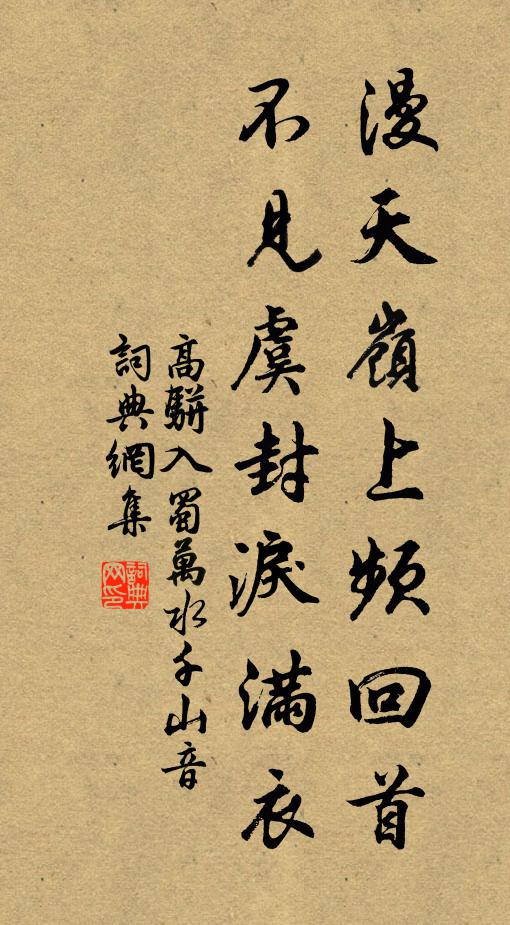 漫天嶺上頻回首
不見虞封淚滿衣
高駢入蜀萬水千山音
詞典網集
詞典网印